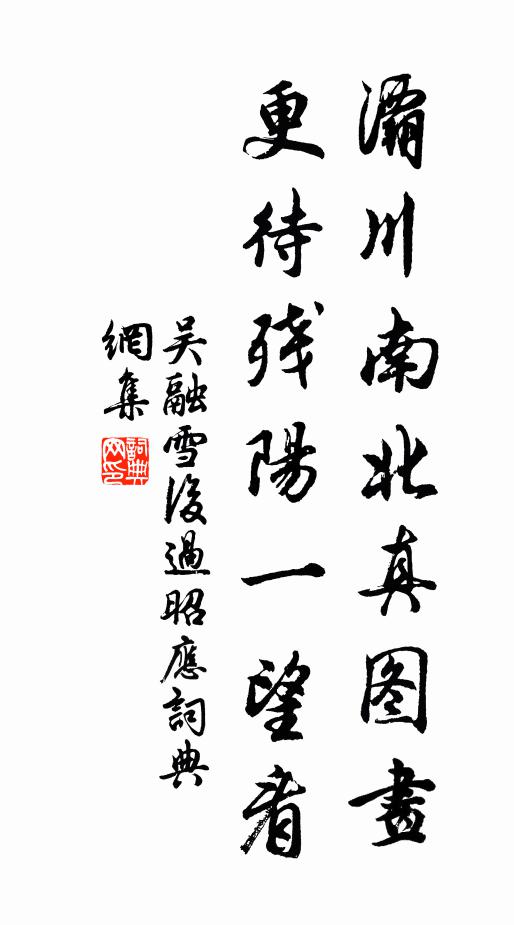 灞川南北真图畫
更待残陽一望看
吴融雪後過昭應詞典
網集
詞典網印